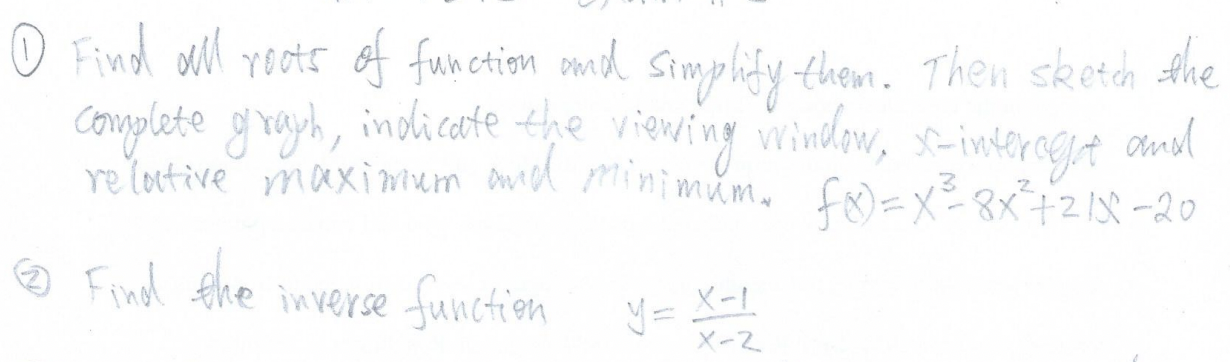 ① Find all roots of function and simplify them. Then sketch the
complete graph, indicate the viewing window, x-intercept and
relative maximum and minimum. f(x)=x³-8x²+21x-20
② Find the inverse function y = (x-1)/(x-2)